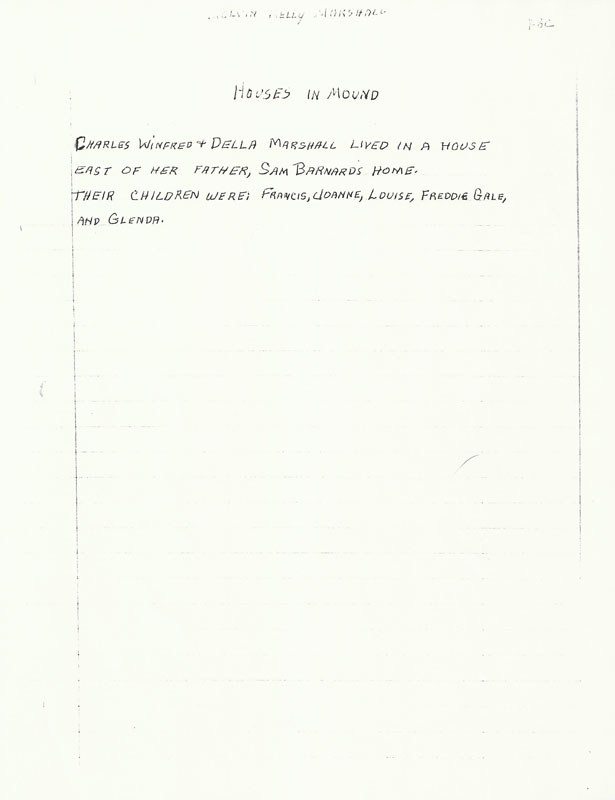 Melvin Kelly Marshall
Houses in Mound
Charles Winfred + Della Marshall lived in a house
east of her father, Sam Barnard's home.
Their children were: Francis, Joanne, Louise, Freddie Gale,
and Glenda.